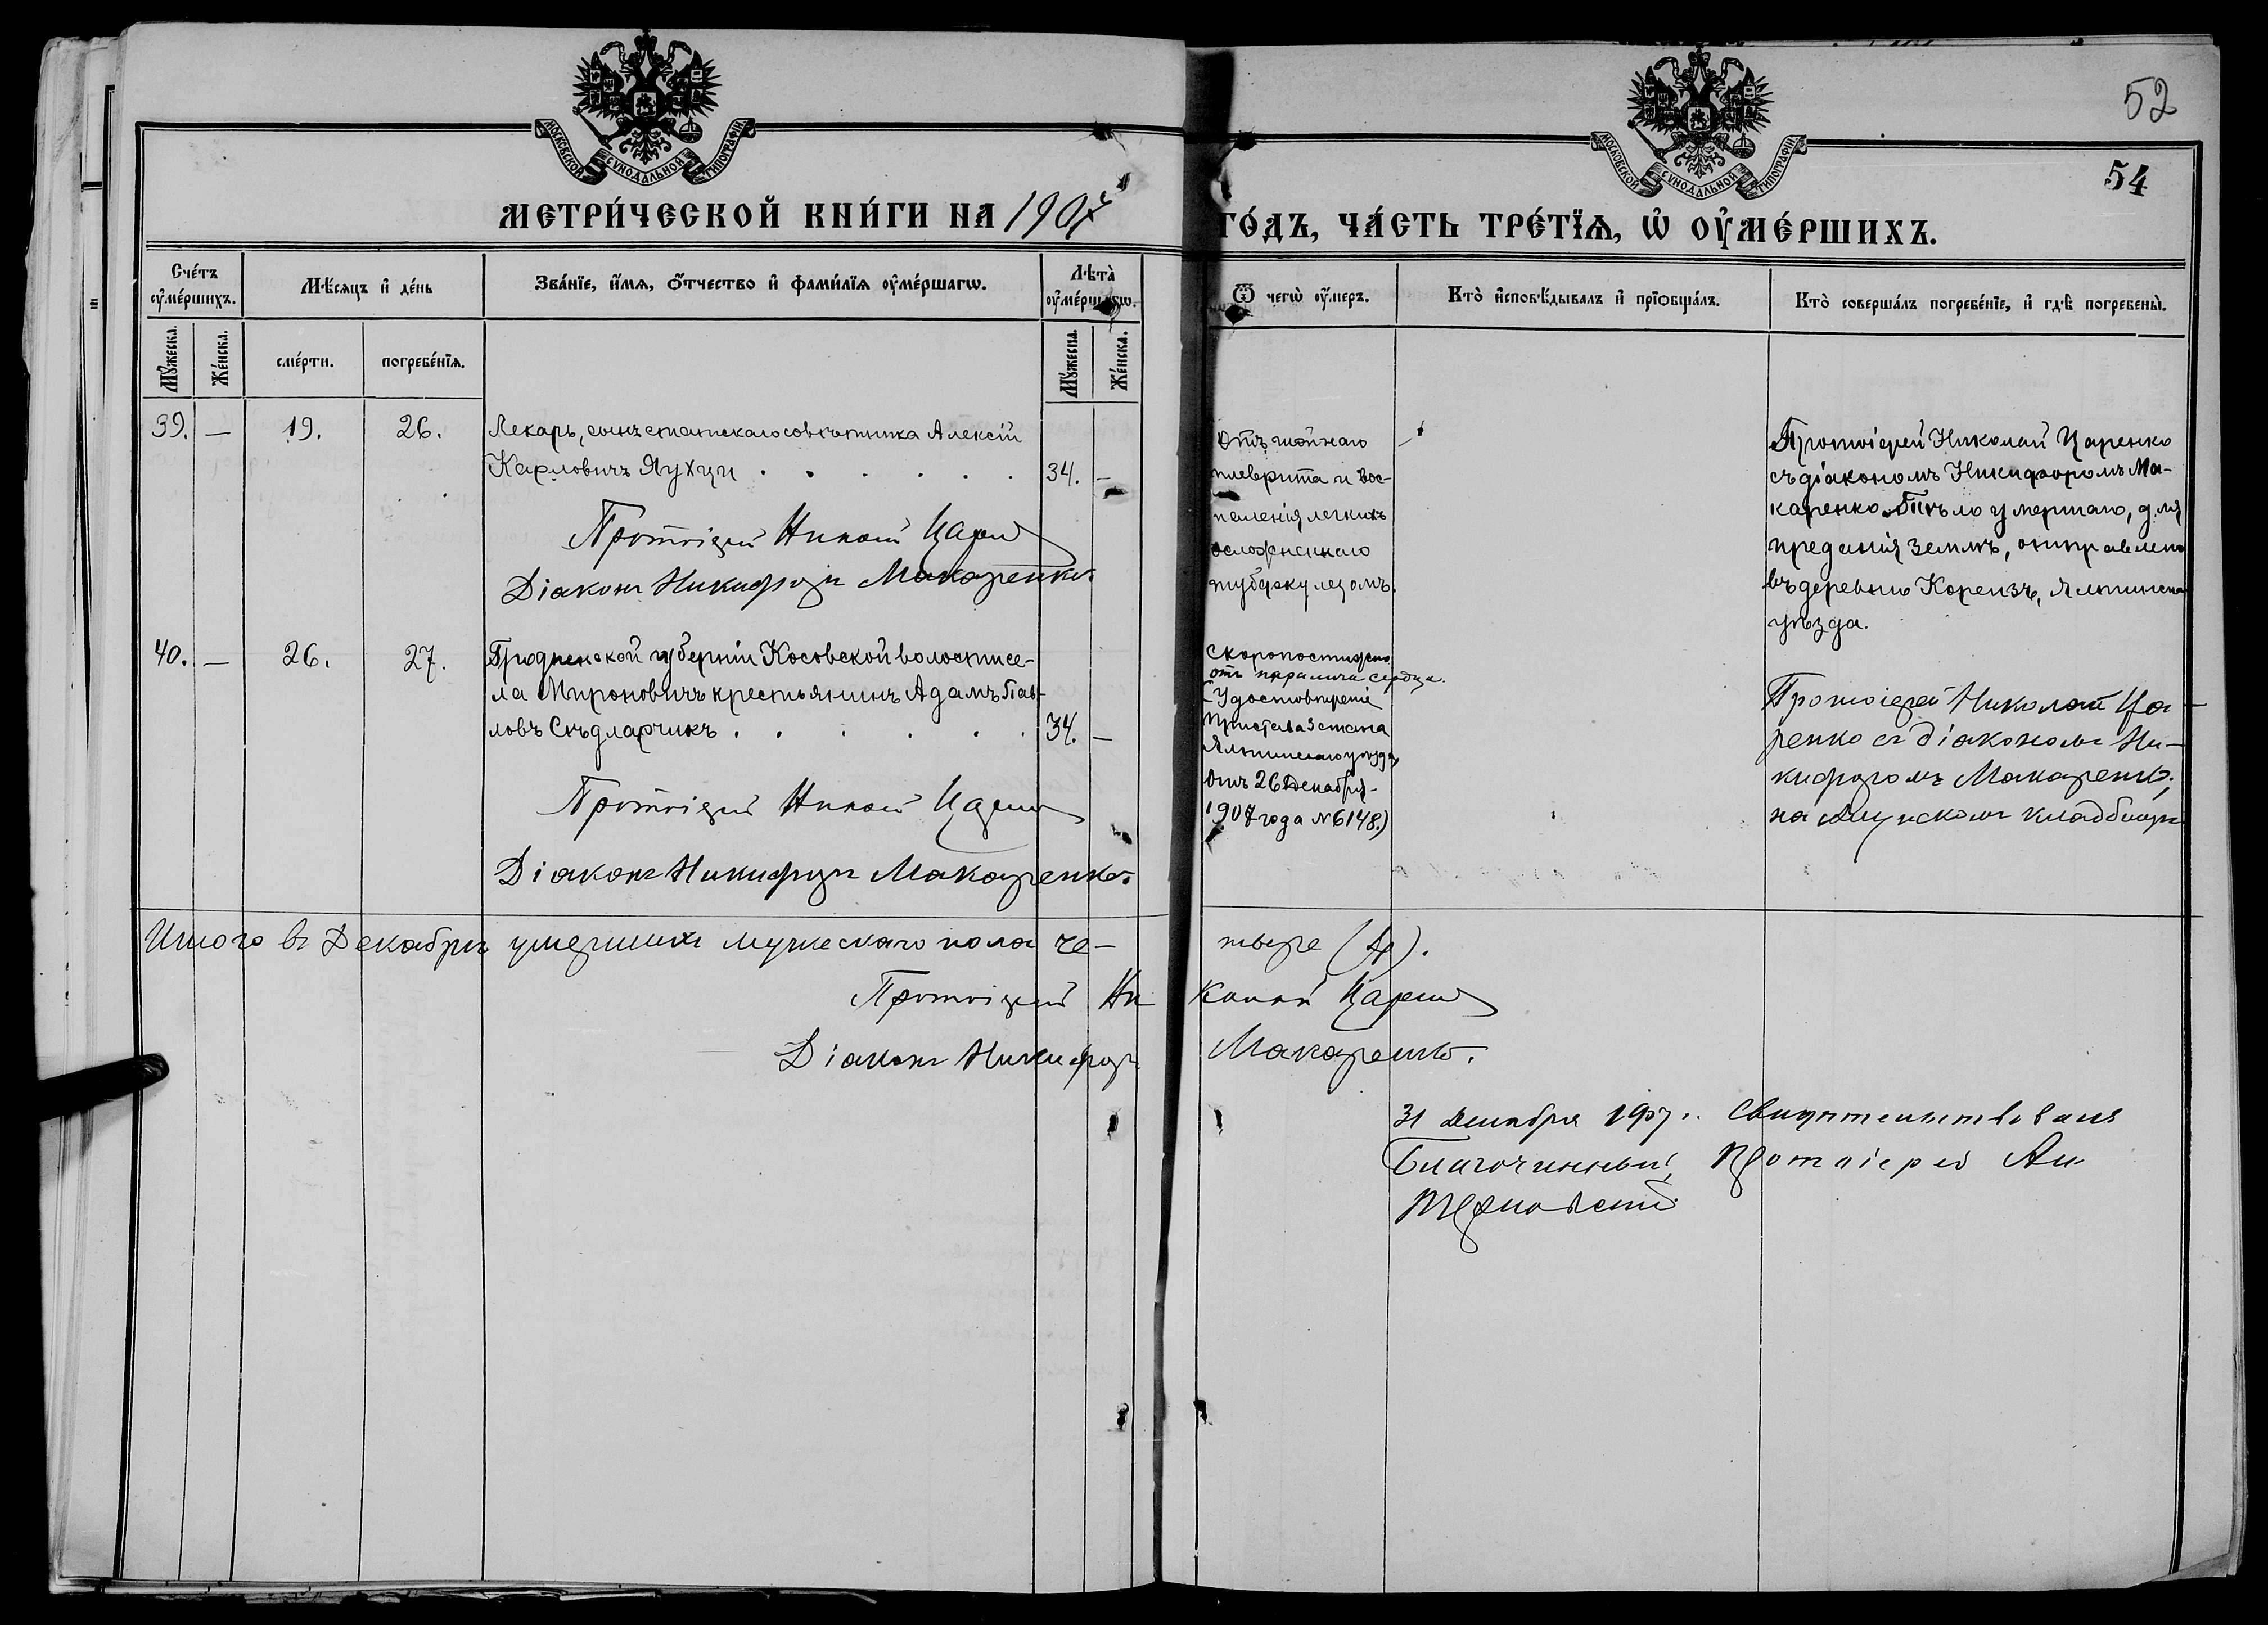 52
54
МОСКОВСКОЙ СУНОДАЛЬНОЙ ТИПОГРАФІИ
МОСКОВСКОЙ СУНОДАЛЬНОЙ ТИПОГРАФІИ
МЕТРИ́ЧЕСКОЙ КНИ́ГИ НА 1907 ГО́ДЪ, ЧА́СТЬ ТРЕ́ТЇѦ, Ѡ҆ ОУ҆МЕ́РШИХЪ.
Сче́тъ оу҆ме́ршихъ.
Мѣ́сяцъ и҆ де́нь
Зва́нїе, и҆́мя, ѻ҆́тчество и҆ фами́лїя оу҆ме́ршагѡ.
Лѣта̀ оу҆ме́ршагѡ.
Ѿ чегѡ̀ оу҆́меръ.
Кто̀ и҆сповѣ́дывалъ и҆ прїѻбща́лъ.
Кто̀ соверша́лъ погребе́нїе, и҆ гдѣ̀ погребены̀.
Му́жеска.
Же́нска.
сме́рти.
погребе́нїя.
Му́жеска.
Же́нска.
39. — 19. 26.
Лекарь, сынъ статскаго совѣтника Алексій
Карловичъ Яухци . . . . . . 34. —
Протоіерей Николай Царенко
Діаконъ Никифоръ Макаренко.
Отъ гнойнаго
плеврита и вос-
паленія легкихъ
осложненнаго
туберкулезомъ.
—
Протоіерей Николай Царенко
съ діакономъ Никифоромъ Ма-
каренко. Тѣло умершаго, для
преданія землѣ, отправлено
въ деревню Кореизъ, Ялтинска
уѣзда.
40. — 26. 27.
Гродненской губерніи Косовской волости се-
ла Мироновичъ крестьянинъ Адамъ Пав-
ловъ Сѣдларчикъ . . . . . . 34. —
Протоіерей Николай Царенко
Діаконъ Никифоръ Макаренко.
Скоропостижно
отъ паралича сердца.
(Удостовѣреніе
Пристава 3 стана
Ялтинскаго уѣзда
отъ 26 Декабря
1907 года № 6148.)
Протоіерей Николай Ца-
ренко съ діакономъ Ни-
кифоромъ Макаренко,
на кладбищѣ
Итого въ Декабрѣ умершихъ мужескаго пола че-
тыре (4).
Протоіерей Николай Царенко
Діаконъ Никифоръ Макаренко.
31 декабря 1907 г. Свидѣтельствовалъ
Благочинный, Протоіерей Ал.
Терновскій